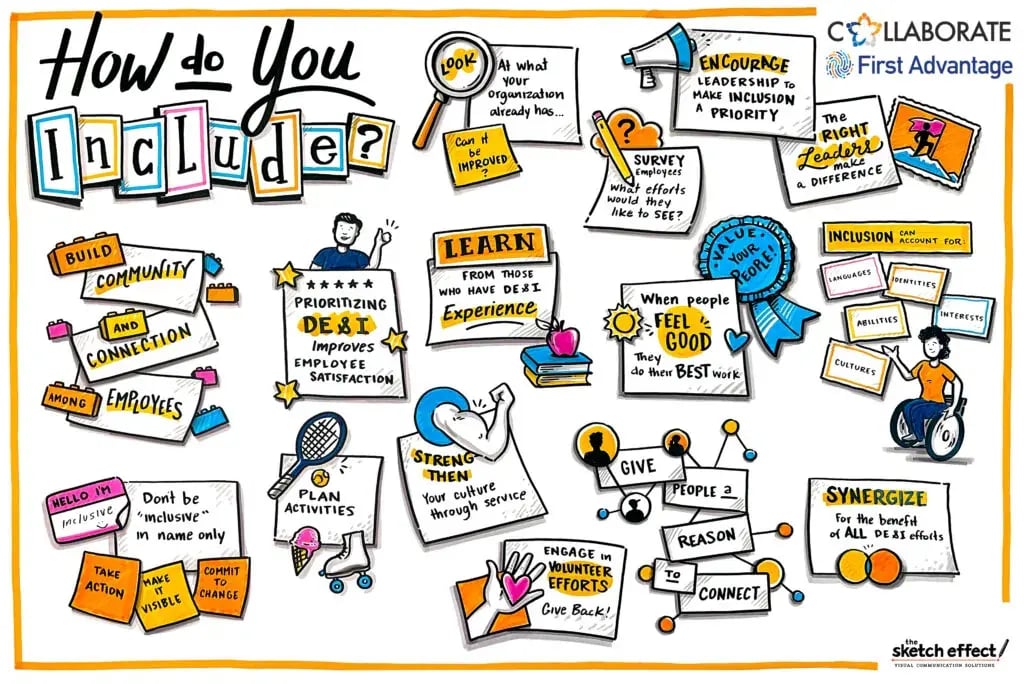 How do You
Include?
COLLABORATE
First Advantage
LOOK
At what
your
organization
already has...
Can it
be
IMPROVED
?
ENCOURAGE
LEADERSHIP TO
MAKE INCLUSION
A PRIORITY
?
SURVEY
Employees
What efforts
would they
like to SEE?
The
RIGHT
Leaders
make
a DIFFERENCE
BUILD
COMMUNITY
AND
CONNECTION
AMONG
EMPLOYEES
PRIORITIZING
DE&I
Improves
EMPLOYEE
SATISFACTION
LEARN
FROM THOSE
WHO HAVE DE&I
Experience
VALUE
YOUR
PEOPLE!
When people
FEEL
GOOD
They
do their BEST work
INCLUSION CAN
ACCOUNT FOR:
LANGUAGES
IDENTITIES
ABILITIES
INTERESTS
CULTURES
HELLO I'M
inclusive
Don't be
"inclusive"
in name only
TAKE
ACTION
MAKE
IT
VISIBLE
COMMIT
TO
CHANGE
PLAN
ACTIVITIES
STRENG
THEN
Your culture
through service
ENGAGE IN
VOLUNTEER
EFFORTS
Give Back!
GIVE
PEOPLE a
REASON
TO
CONNECT
SYNERGIZE
For the benefit
of ALL DE&I efforts
the
sketch effect!
VISUAL COMMUNICATION SOLUTIONS